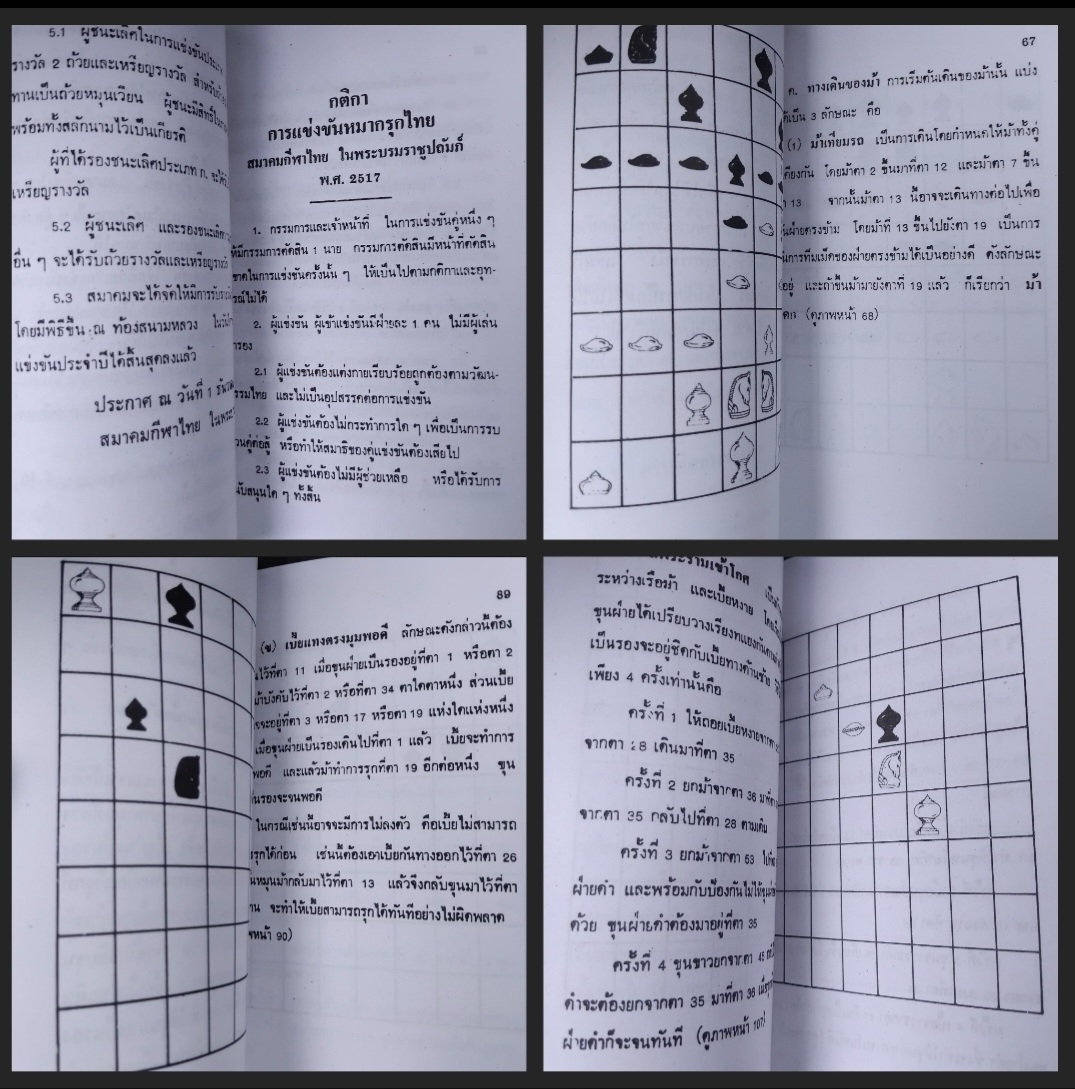 5.1 ผู้ชนะเลิศในการแข่งขันประเภท
รางวัล 2 ถ้วยและเหรียญรางวัล สำหรับถ้วย
ทานเป็นถ้วยหมุนเวียน ผู้ชนะมีสิทธิ์
พร้อมทั้งสลักนามไว้เป็นเกียรติ
ผู้ที่ได้รองชนะเลิศประเภท ก. จะได้รับ
เหรียญรางวัล
5.2 ผู้ชนะเลิศ และรองชนะเลิศ
อื่น ๆ จะได้รับถ้วยรางวัลและเหรียญรางวัล
5.3 สมาคมจะได้จัดให้มีการรับ
โดยมีพิธีขึ้น ณ ท้องสนามหลวง
แข่งขันประจำปีได้สิ้นสุดลงแล้ว
ประกาศ ณ วันที่ 1
สมาคมกีฬาไทย ในพระ
กติกา
การแข่งขันหมากรุกไทย
สมาคมกีฬาไทย ในพระบรมราชูปถัมภ์
พ.ศ. 2517
1. กรรมการและเจ้าหน้าที่ ในการแข่งขันคู่หนึ่ง ๆ
ให้มีกรรมการตัดสิน 1 นาย กรรมการตัดสินมีหน้าที่ตัดสิน
ขาดในการแข่งขันครั้งนั้น ๆ ให้เป็นไปตามกติกาและอุท-
รณ์ไม่ได้
2. ผู้แข่งขัน ผู้เข้าแข่งขันมีฝ่ายละ 1 คน ไม่มีผู้เล่น
ารอง
2.1 ผู้แข่งขันต้องแต่งกายเรียบร้อยถูกต้องตามวัฒน-
รรมไทย และไม่เป็นอุปสรรคต่อการแข่งขัน
2.2 ผู้แข่งขันต้องไม่กระทำการใด ๆ เพื่อเป็นการรบ
วนคู่ต่อสู้ หรือทำให้สมาธิของคู่แข่งขันต้องเสียไป
2.3 ผู้แข่งขันต้องไม่มีผู้ช่วยเหลือ หรือได้รับการ
นับสนุนใด ๆ ทั้งสิ้น
67
ค. ทางเดินของม้า การเริ่มต้นเดินของม้านั้น แบ่ง
ได้เป็น 3 ลักษณะ คือ
(1) ม้าเทียมรถ เป็นการเดินโดยกำหนดให้ม้าทั้งคู่
เคียงกัน โดยม้าตา 2 ขึ้นมาที่ตา 12 และม้าตา 7 ขึ้น
า 13 จากนั้นม้าตา 13 นี้อาจจะเดินทางต่อไปเพื่อ
นฝ่ายตรงข้าม โดยม้าที่ 13 ขึ้นไปยังตา 19 เป็นการ
นการทิ่มเม็ดของฝ่ายตรงข้ามได้เป็นอย่างดี ดังลักษณะ
อยู่ และถ้าขึ้นม้ามายังตาที่ 19 แล้ว ก็เรียกว่า ม้า
(ดูภาพหน้า 68)
89
(ข) เบี้ยแทงตรงมุมพอดี ลักษณะดังกล่าวนี้ต้อง
ไว้ที่ตา 11 เมื่อขุนฝ่ายเป็นรองอยู่ที่ตา 1 หรือตา 2
ม้าบังคับไว้ที่ตา 2 หรือที่ตา 34 ตาใดตาหนึ่ง ส่วนเบี้ย
จะอยู่ที่ตา 3 หรือตา 17 หรือตา 19 แห่งใดแห่งหนึ่ง
เมื่อขุนฝ่ายเป็นรองเดินไปที่ตา 1 แล้ว เบี้ยจะทำการ
พอดี และแล้วม้าทำการรุกที่ตา 19 อีกต่อหนึ่ง ขุน
นรองจะจนพอดี
ในกรณีเช่นนี้อาจจะมีการไม่ลงตัว คือเบี้ยไม่สามารถ
รุกได้ก่อน เช่นนี้ต้องเอาเบี้ยกันทางออกไว้ที่ตา 26
นหมุนม้ากลับมาไว้ที่ตา 13 แล้วจึงกลับขุนมาไว้ที่ตา
าน จะทำให้เบี้ยสามารถรุกได้ทันทีอย่างไม่ผิดพลาด
พหน้า 90)
พระรามเข้าโกศ
ระหว่างเรือม้า และเบี้ยหงาย
ขุนฝ่ายได้เปรียบวางเรียงทแยงกัน
เป็นรองจะอยู่ชิดกับเบี้ยทางด้านซ้าย
เพียง 4 ครั้งเท่านั้นคือ
ครั้งที่ 1 ให้ถอยเบี้ยหงายจาก
จากตา 28 เดินมาที่ตา 35
ครั้งที่ 2 ยกม้าจากตา 36 มาที่
จากตา 35 กลับไปที่ตา 28 ตามเดิม
ครั้งที่ 3 ยกม้าจากตา 53
ฝ่ายดำ และพร้อมกับป้องกันไม่ให้ขุน
ด้วย ขุนฝ่ายดำต้องมาอยู่ที่ตา 35
ครั้งที่ 4 ขุนขาวยกจากตา 45
ดำจะต้องยกจากตา 35 มาที่ตา 36
ฝ่ายดำก็จะจนทันที (ดูภาพหน้า 107)